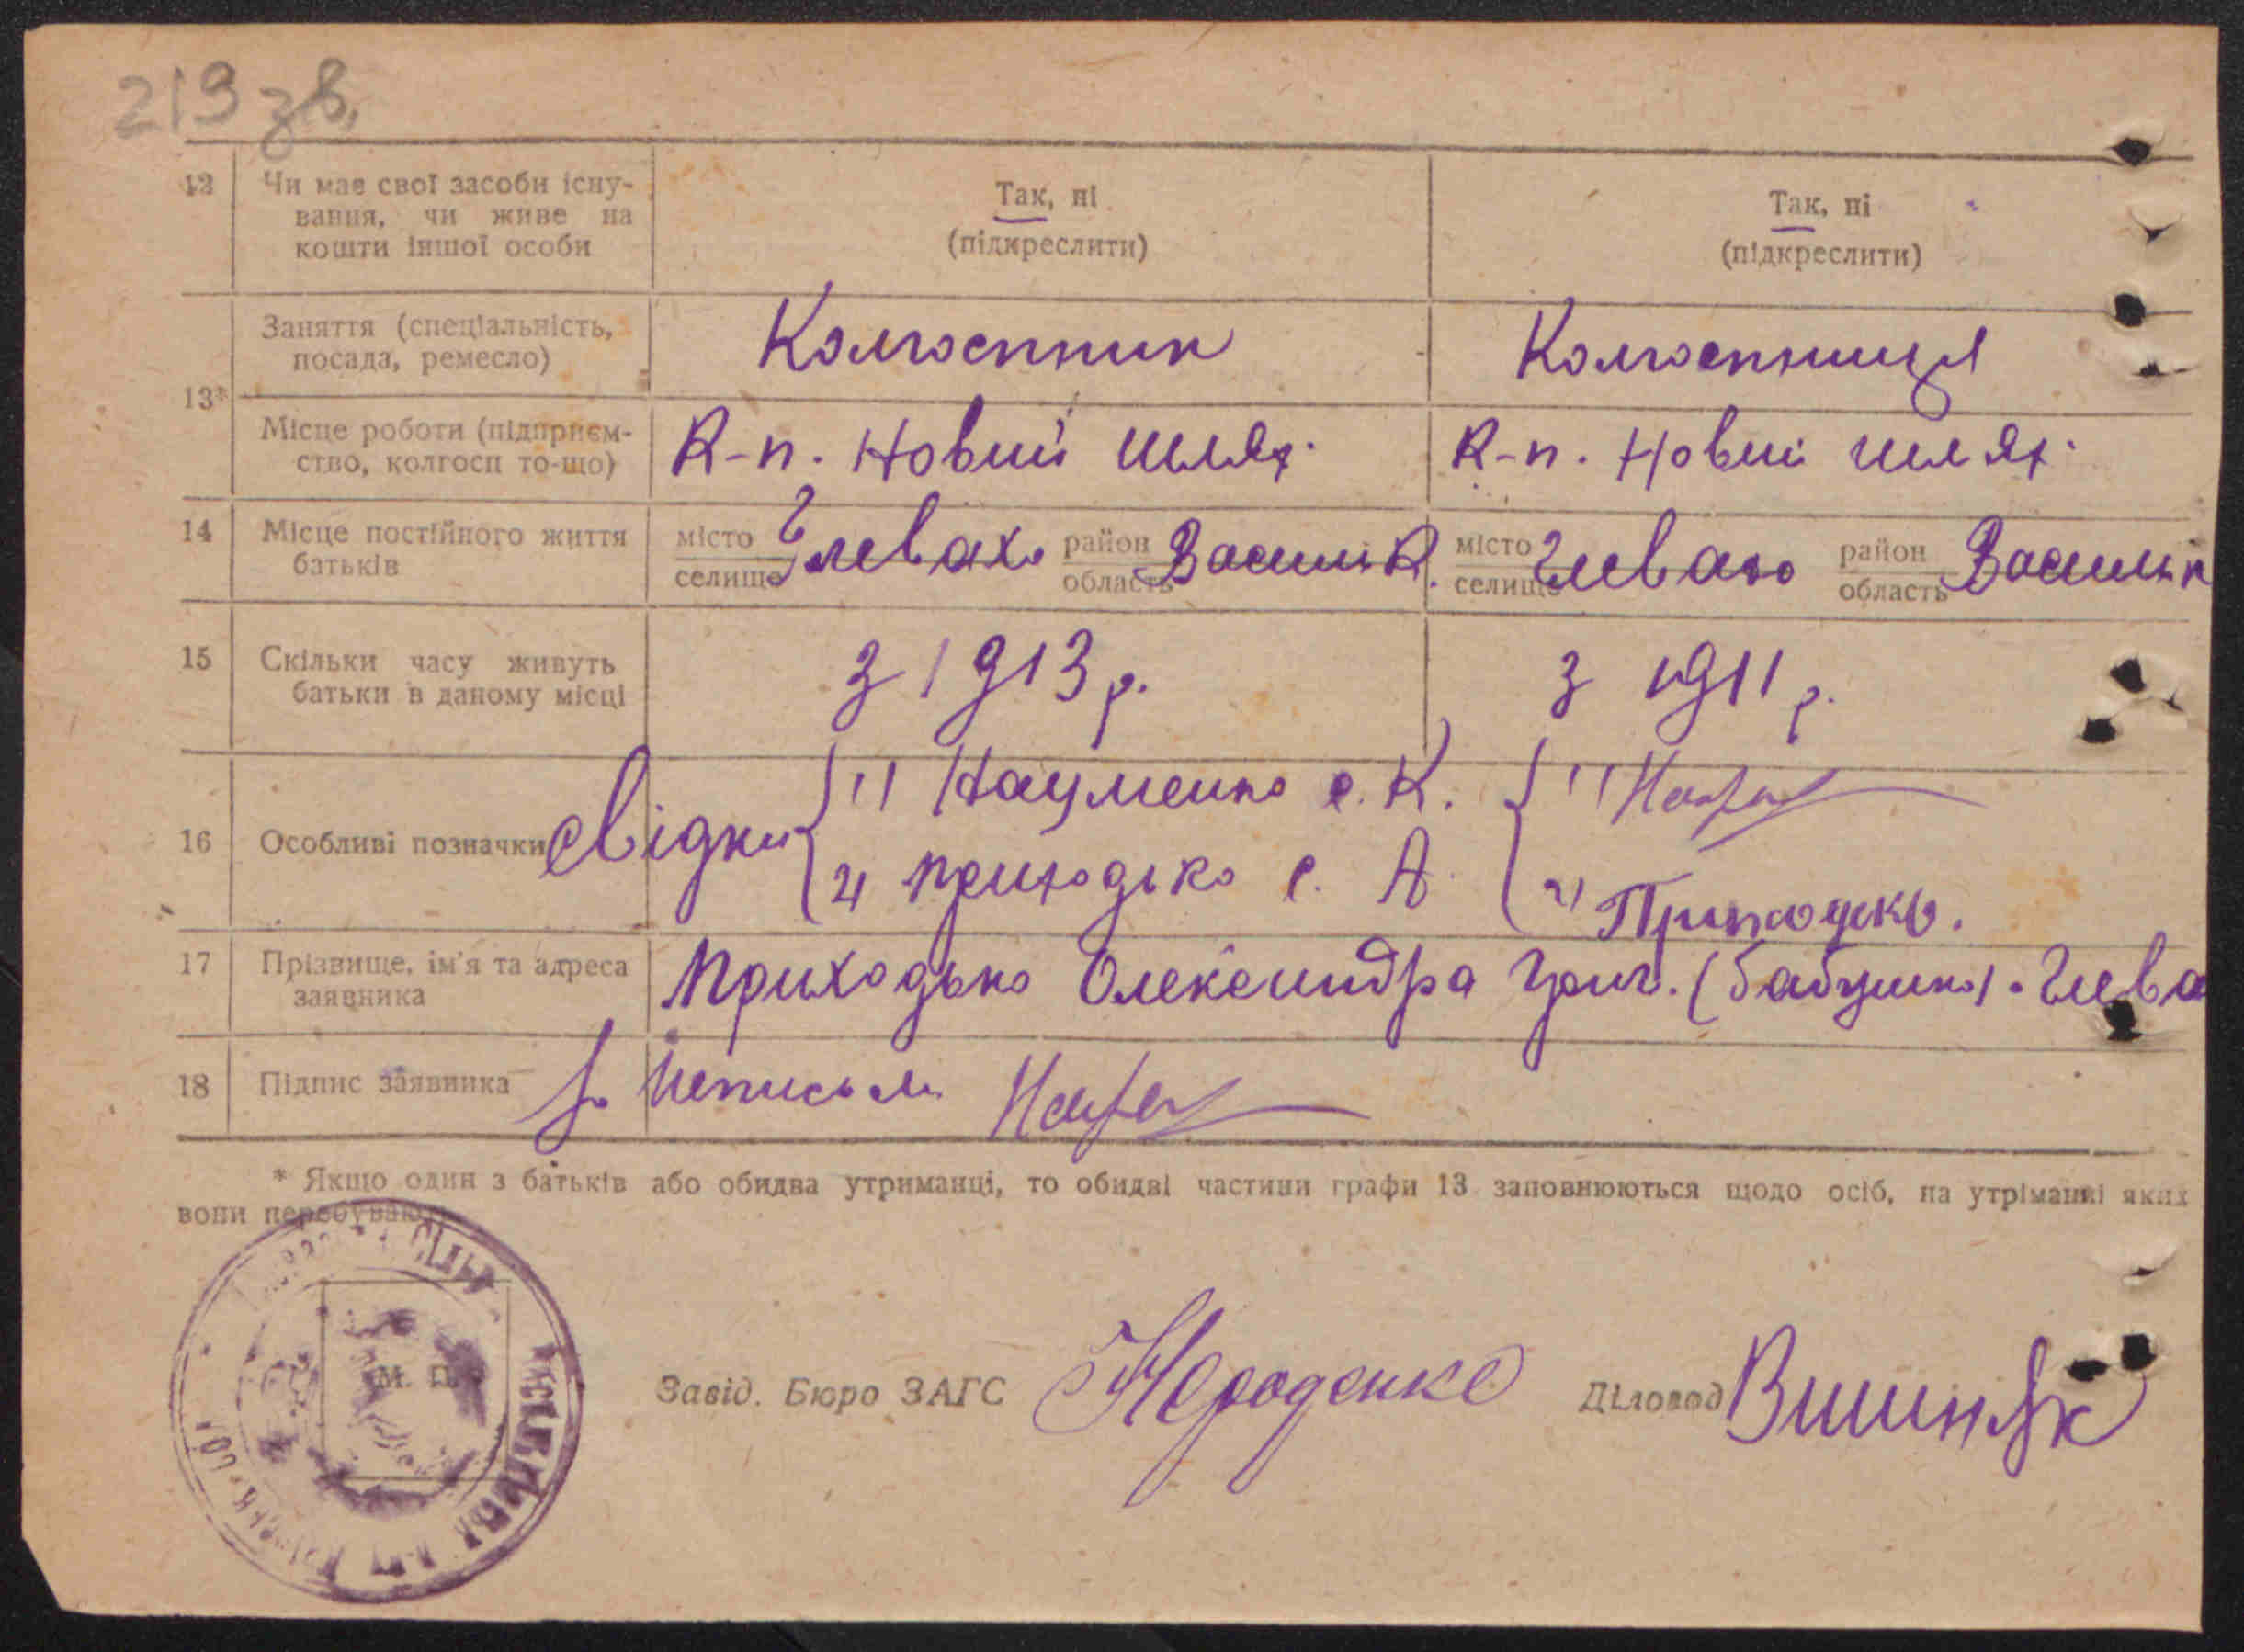 219 зв.
12 Чи має свої засоби існу- Так, ні Так, ні
вання, чи живе на (підкреслити) (підкреслити)
кошти іншої особи
Заняття (спеціальність, Колгоспник Колгоспниця
посада, ремесло)
13*
Місце роботи (підприєм- К-п. Новий шлях. К-п. Новий шлях.
ство, колгосп то-що)
14 Місце постійного життя місто Глеваха район Василк. місто Глеваха район Васильк
батьків селище область селище область
15 Скільки часу живуть з 1913 р. з 1911 р.
батьки в даному місці
16 Особливі позначки свідки 1) Науменко с. К. 1)
2) Приходько с. А. 2) Приходько.
17 Прізвище, ім'я та адреса Приходько Олександра Григ. (бабушка). Глева
заявника
18 Підпис заявника неписьм.
* Якщо один з батьків або обидва утриманці, то обидві частини графи 13 заповнюються щодо осіб, на утріманні яких
вони перебувають.
М. П.
Завід. Бюро ЗАГС Нероденко Діловод Вишняк